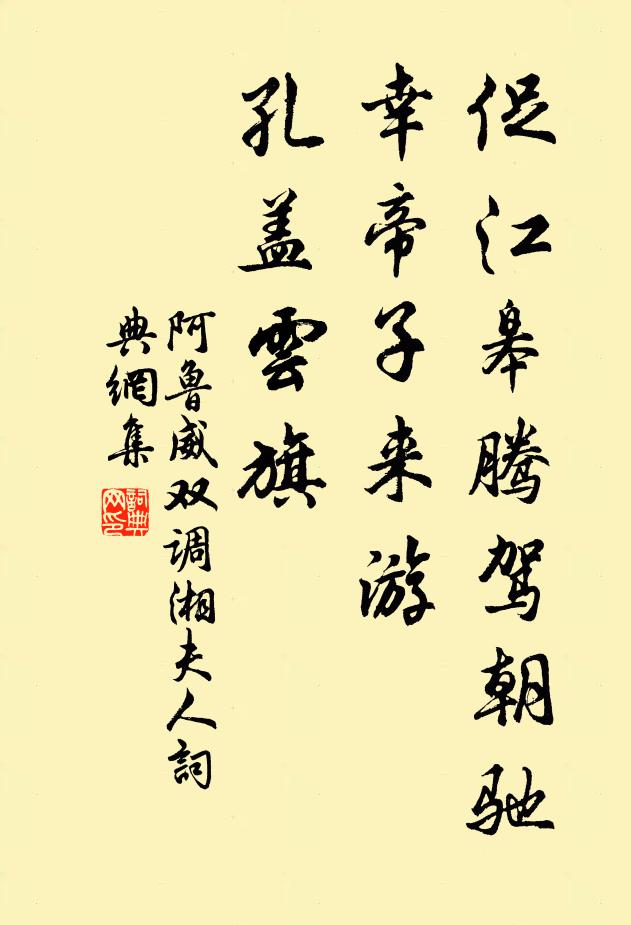 促江皋腾驾朝驰
幸帝子来游
孔盖雲旗
阿鲁威双调湘夫人詞
典網集
詞典网印